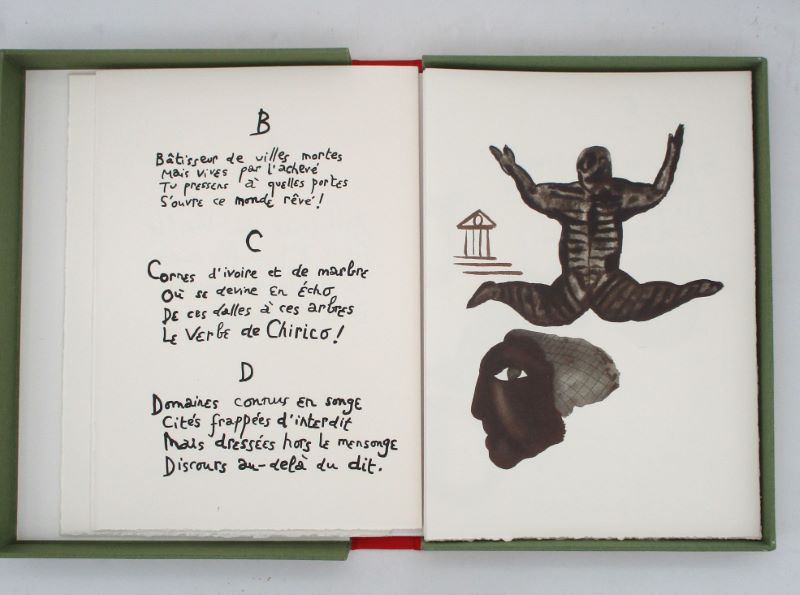 B
Bâtisseur de villes mortes
Mais vives par l'achevé
Tu pressens à quelles portes
S'ouvre ce monde rêvé!
C
Cornes d'ivoire et de marbre
Où se devine en écho
De ces dalles à ces arbres
Le Verbe de Chirico!
D
Domaines connus en songe
Cités frappées d'interdit
Mais dressées hors le mensonge
Discours au-delà du dit.